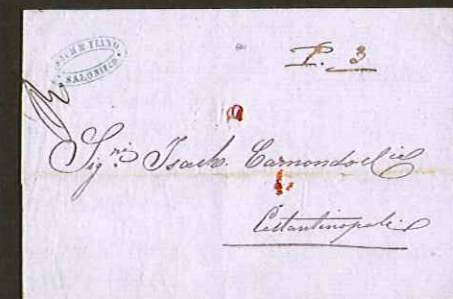 SALONICCO
P. 3
Sig.ni Isach Camondo e Cie
Costantinopoli